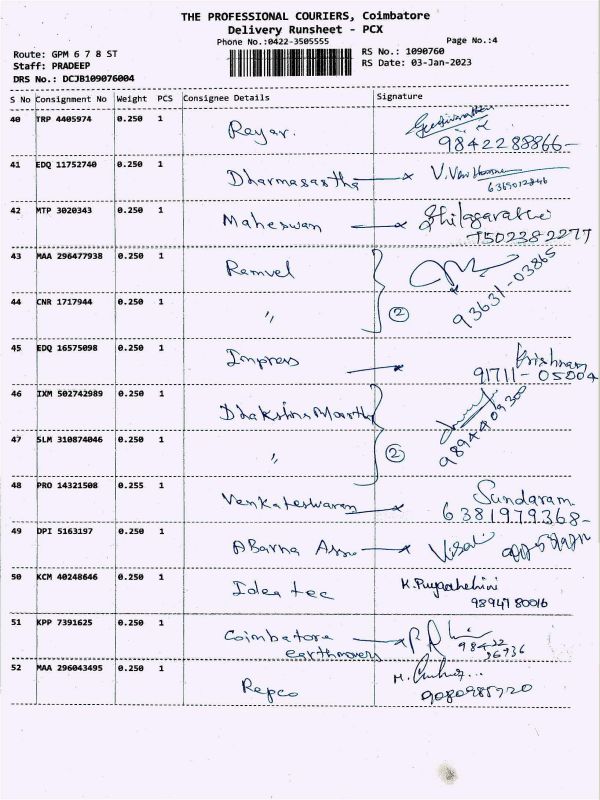 THE PROFESSIONAL COURIERS, Coimbatore
Delivery Runsheet - PCX
Phone No.:0422-3505555 Page No.:4
Route: GPM 6 7 8 ST RS No.: 1090760
Staff: PRADEEP RS Date: 03-Jan-2023
DRS No.: DCJB109076004
S No Consignment No Weight PCS Consignee Details Signature
40 TRP 4405974 0.250 1 Rayar.
9842288866-
41 EDQ 11752740 0.250 1 Dharmasastha
6369012846
42 MTP 3020343 0.250 1 Maheswari
7502382277
43 MAA 296477938 0.250 1 Ramvel
93631-03865
44 CNR 1717944 0.250 1 〃 2
45 EDQ 16575098 0.250 1 Impress Krishnan
91711-05004
46 IXM 502742989 0.250 1
9894440930
47 SLM 310874046 0.250 1 〃 2
48 PRO 14321508 0.255 1 Venkateswaran Sundaram
6381979368-
49 DPI 5163197 0.250 1 ABarna
50 KCM 40248646 0.250 1 Idea tec
9894780016
51 KPP 7391625 0.250 1 Coimbatore
earthmovers 98422
52 MAA 296043495 0.250 1 Repco
9080985720